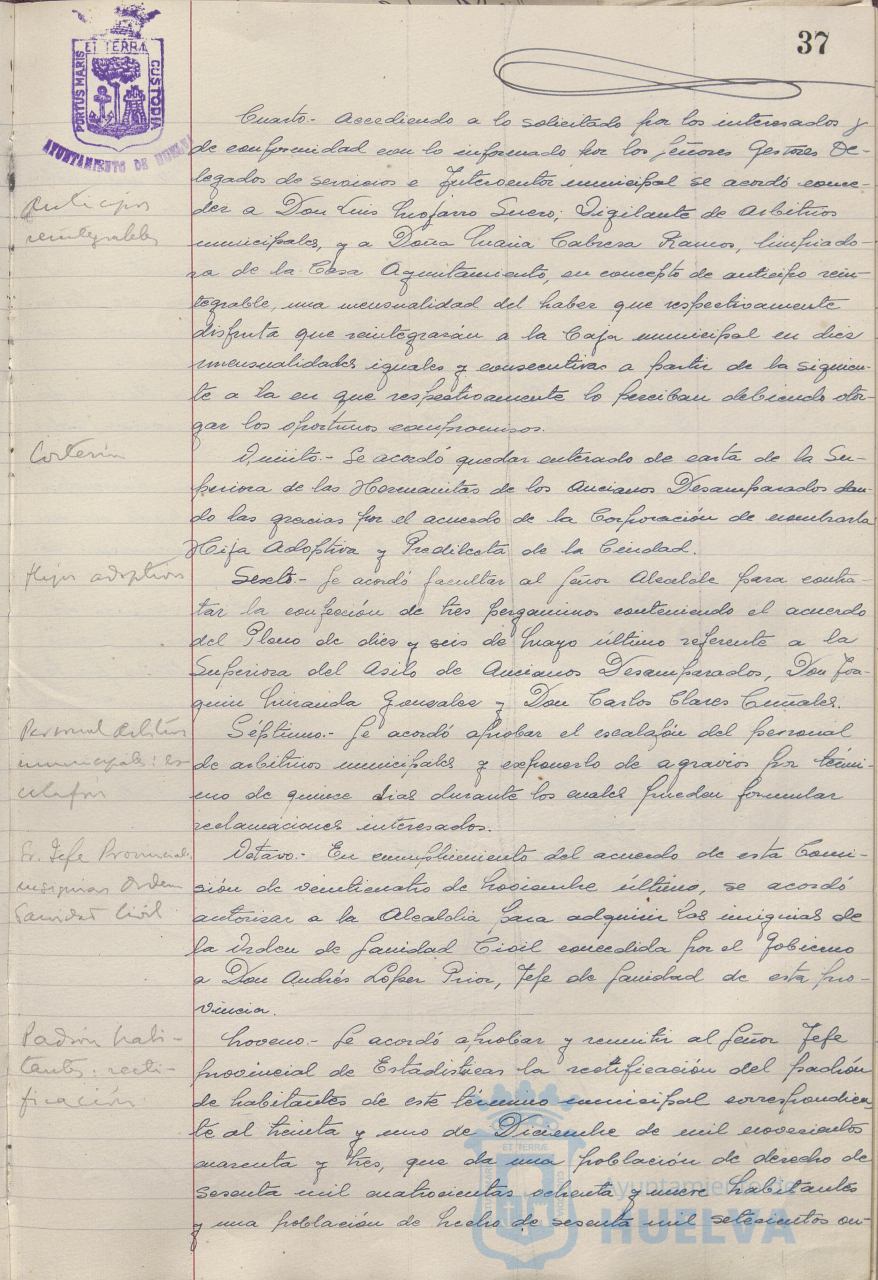 37
PORTUS MARIS ET TERRÆ CUSTODIA
AYUNTAMIENTO DE HUELVA
Cuarto.- Accediendo a lo solicitado por los interesados y
de conformidad con lo informado por los Señores Gestores De-
legados de servicios e Interventor municipal se acordó conce-
der a Don Luis Mojarro Suero, Vigilante de Arbitrios
municipales, y a Doña Maria Cabrera Ramos, limpiado-
ra de la Casa Ayuntamiento, en concepto de anticipo rein-
tegrable, una mensualidad del haber que respectivamente
disfruta que reintegrarán a la Caja municipal en diez
mensualidades iguales y consecutivas a partir de la siguien-
te a la en que respectivamente lo perciban debiendo otor-
gar los oportunos compromisos.
Anticipos
reintegrables
Quinto.- Se acordó quedar enterado de carta de la Su-
periora de las Hermanitas de los Ancianos Desamparados dan-
do las gracias por el acuerdo de la Corporación de nombrarla
Hija Adoptiva y Predilecta de la Ciudad.
Cortesía
Sexto.- Se acordó facultar al Señor Alcalde para contra-
tar la confección de tres pergaminos conteniendo el acuerdo
del Pleno de diez y seis de Mayo último referente a la
Superiora del Asilo de Ancianos Desamparados, Don Joa-
quin Miranda Gonzalez y Don Carlos Clares
Hijos adoptivos
Séptimo.- Se acordó aprobar el escalafón del personal
de arbitrios municipales y exponerlo de agravios por térmi-
no de quince dias durante los cuales pueden formular
reclamaciones interesados.
Personal Arbitrios
municipales: es-
calafon
Octavo.- En cumplimiento del acuerdo de esta Comi-
sión de veinticuatro de Noviembre último, se acordó
autorizar a la Alcaldia para adquirir las insignias de
la Orden de Sanidad Civil concedida por el Gobierno
a Don Andrés López Prior, Jefe de Sanidad de esta pro-
vincia.
Sr. Jefe Provincial,
insignias Orden
Sanidad Civil
Noveno.- Se acordó aprobar y remitir al Señor Jefe
provincial de Estadisticas la rectificación del padrón
de habitantes de este término municipal correspondien-
te al treinta y uno de Diciembre de mil novecientos
cuarenta y tres, que da una población de derecho de
sesenta mil cuatrocientas ochenta y nueve habitantes
y una población de hecho de sesenta mil setecientos on-
Padrón habi-
tantes: recti-
ficación
Ayuntamiento de
HUELVA